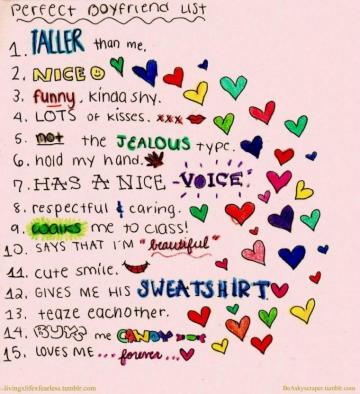 perfect Boyfriend List
1. TALLER than me.
2. NICE
3. funny, kinda shy.
4. LOTS of kisses. xxx
5. not the JEALOUS type.
6. hold my hand.
7. HAS A NICE -VOICE
8. respectful & caring.
9. walks me to class!
10. SAYS THAT I'M "beautiful"
11. cute smile.
12. GIVES ME HIS SWEATSHIRT
13. teaze eachother.
14. BUYS me CANDY
15. LOVES ME... forever...
livingxlifexfearless.tumblr.com
BeAskyscraper.tumblr.com